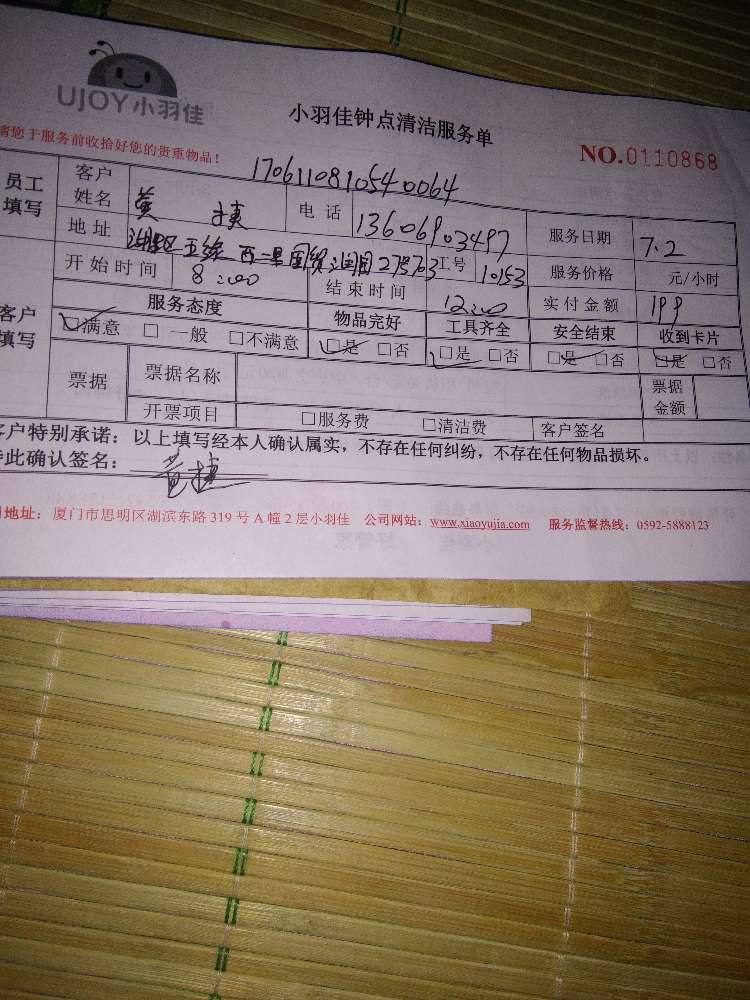 UJOY小羽佳
小羽佳钟点清洁服务单
请您于服务前收拾好您的贵重物品！
NO.0110868
1706110810540064
员工填写 客户姓名 黄 电话 13606903497 服务日期 7.2
地址 湖里区 五缘 西一里国贸润园27号703 工号 10153 服务价格 元/小时
开始时间 8:00 结束时间 12:00 实付金额 199
客户填写 服务态度 物品完好 工具齐全 安全结束 收到卡片
☑满意 □一般 □不满意 ☑是 □否 ☑是 □否 ☑是 □否 ☑是 □否
票据 票据名称 票据金额
开票项目 □服务费 □清洁费 客户签名
客户特别承诺：以上填写经本人确认属实，不存在任何纠纷，不存在任何物品损坏。
特此确认签名：黄
司地址：厦门市思明区湖滨东路 319 号 A 幢 2 层小羽佳 公司网站：www.xiaoyujia.com 服务监督热线：0592-5888123